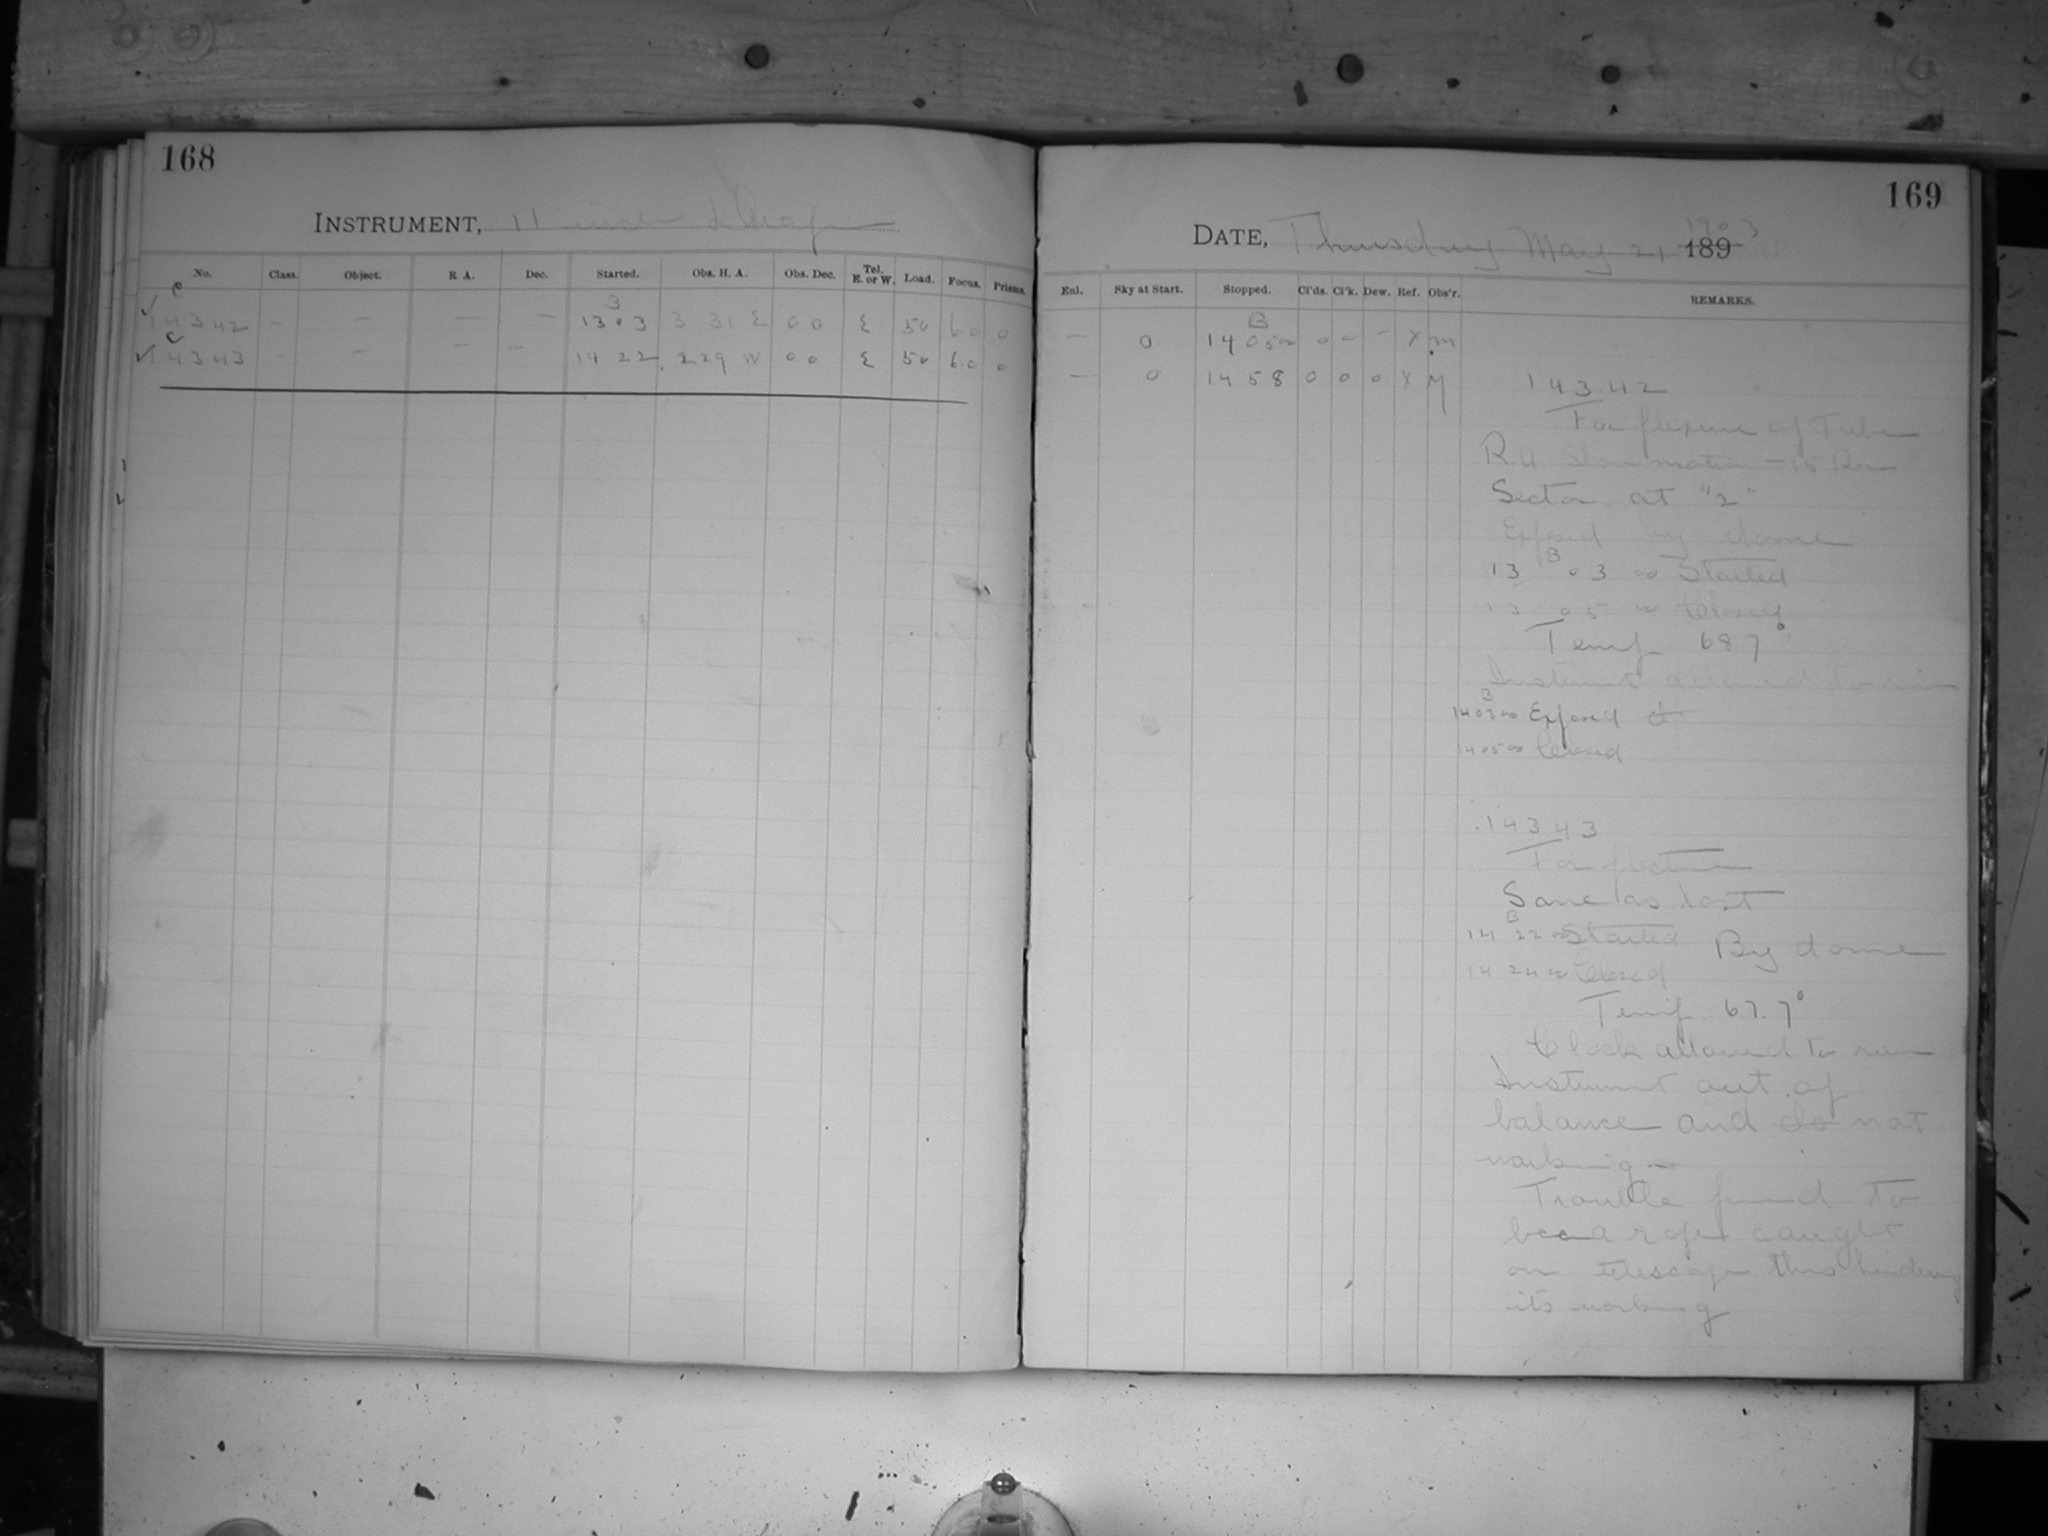 168
INSTRUMENT, 11 inch Draper
No. Class. Object. R. A. Dec. Started. Obs. H. A. Obs. Dec. Tel. E. or W. Load. Focus. Prisms.
C B
✓ 14342 — — — — 13 03 3 31 E 00 E 50 6.0 0
C
✓ 14343 — — — — 14 22 2 29 W 00 E 50 6.0 0
169
DATE, Thursday May 21, 1903
189
Enl. Sky at Start. Stopped. Cl'ds. Cl'k. Dew. Ref. Obs'r. REMARKS.
B
— 0 14 05 00 0 0 — X m
— 0 14 58 0 0 0 X M
14342
For flexure of Tube
R.A. Slow motion — 15 Rev
Sector at "2"
Exposed by dome
13 B 03 00 Started
13 05 00 Closed
Temp 68.7°
Instrument allowed to run
B
14 03 00 Exposed
14 05 00 Closed
14343
For flexure
Same as last
B
14 22 00 Started By dome
14 24 00 Closed
Temp. 67.7°
Clock allowed to run
Instrument out of
balance and do not
working
Trouble found to
bee a rope caught
on telescope thus hindering
its working